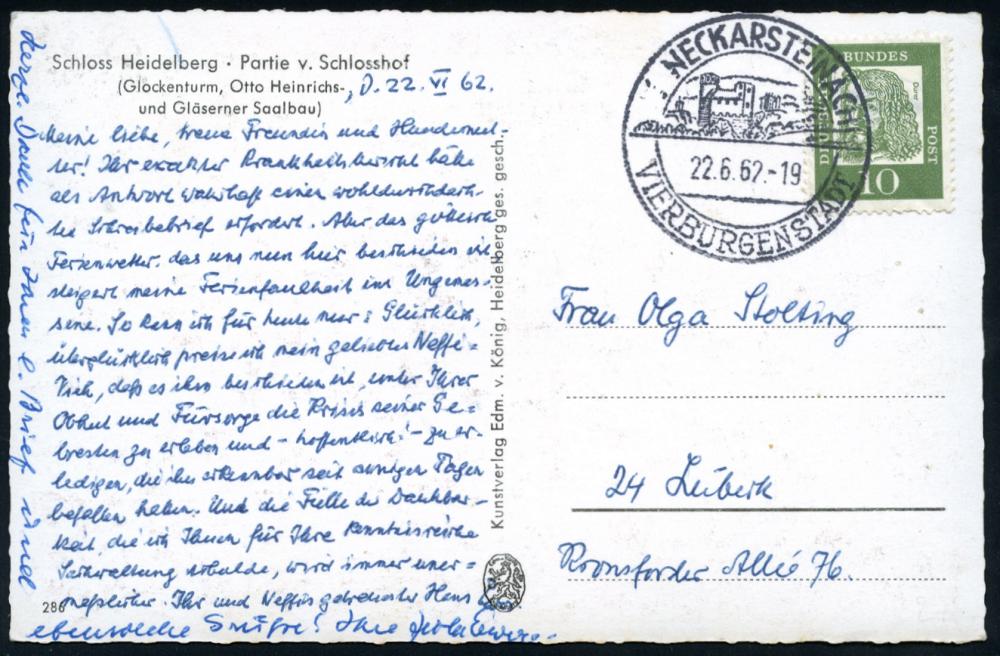 Schloss Heidelberg · Partie v. Schlosshof
(Glockenturm, Otto Heinrichs-
und Gläserner Saalbau)
, D. 22. VI 62.
Meine liebe, treue Freundin und Hundemut-
ter! Ihr exakter Krankheitsbericht hätte
als Antwort wahrhaft einen wohldurchdach-
ten Schreibebrief erfordert. Aber das
Ferienwetter, das uns nun hier beschieden ist
steigert meine Ferienfaulheit ins Ungemes-
sene. So kann ich für heute nur: Glücklich,
überglücklich preise ich mein geliebtes Neffi-
Vieh, daß es ihm beschieden ist, unter Ihrer
Obhut und Fürsorge die Krisis seiner Ge-
bresten zu erleben und – hoffentlich! – zu er-
ledigen, die ihn erkennbar seit einigen Tagen
befallen haben. Und die Fülle der Dankbar-
keit, die ich Ihnen für Ihre kenntnisreiche
Sachwaltung schulde, wird immer uner-
meßlicher. Ihr und Neffis getreuester Hans
Herzl. Dank für Ihren l. Brief und
ebensolche Grüße! Ihre
286
Kunstverlag Edm. v. König, Heidelberg ges. gesch.
NECKARSTEINACH
22.6.62.-19
VIERBURGENSTADT
DEUTSCHE BUNDESPOST
Dürer
10
Frau Olga Stolting
24 Lübeck
Kronsforder Allé 76.